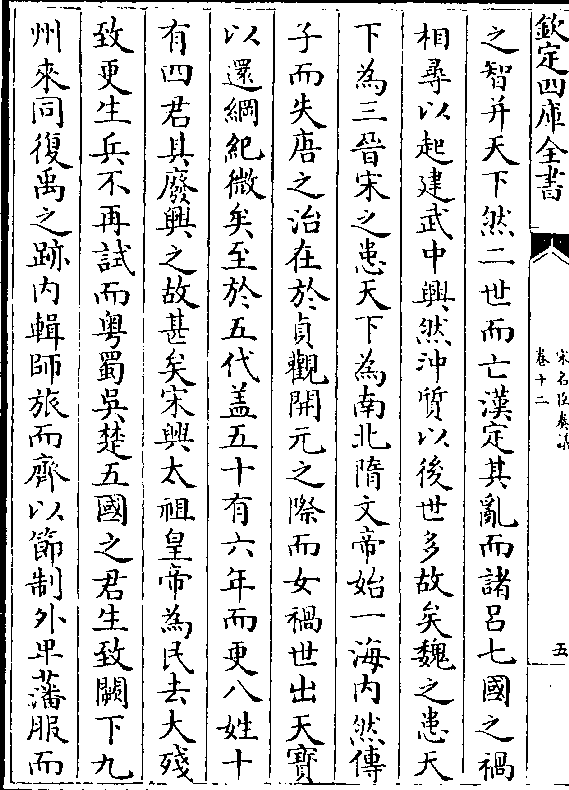 欽定四庫全書
宋名臣奏議
卷十二
五
之智并天下然二世而亡漢定其亂而諸呂七國之禍
相尋以起建武中興然沖質以後世多故矣魏之患天
下為三晉宋之患天下為南北隋文帝始一海内然傳
子而失唐之治在於貞觀開元之際而女禍世出天寶
以還綱紀微矣至於五代盖五十有六年而更八姓十
有四君其廢興之故甚矣宋興太祖皇帝為民去大殘
致更生兵不再試而粤蜀吳楚五國之君生致闕下九
州來同復禹之跡内輯師旅而齊以節制外卑藩服而